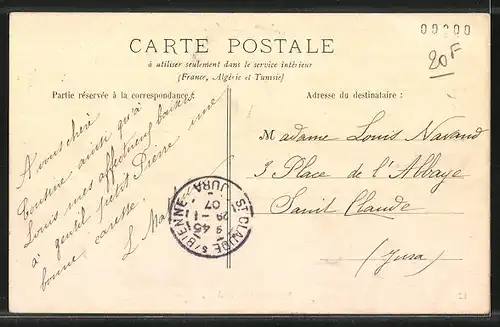 00200
20F
CARTE POSTALE
à utiliser seulement dans le service intérieur
(France, Algérie et Tunisie)
Partie réservée à la correspondance
Adresse du destinataire :
A vous chère
Cousine ainsi qu'à
Louis mes affectueux baisers
à gentil petit Pierre une
bonne caresse
L
Madame Louis Navand
3 Place de l'Abbaye
Sanit Claude
(Jura)
ST CLAUDE S/BIENNE
JURA
9 45
29 - 1
07